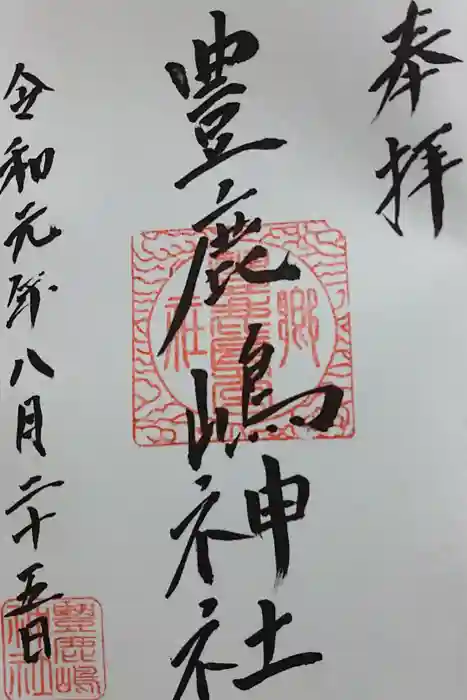 奉拝
豊鹿嶋神社
令和元年八月二十五日
郷社
豊鹿嶋神社